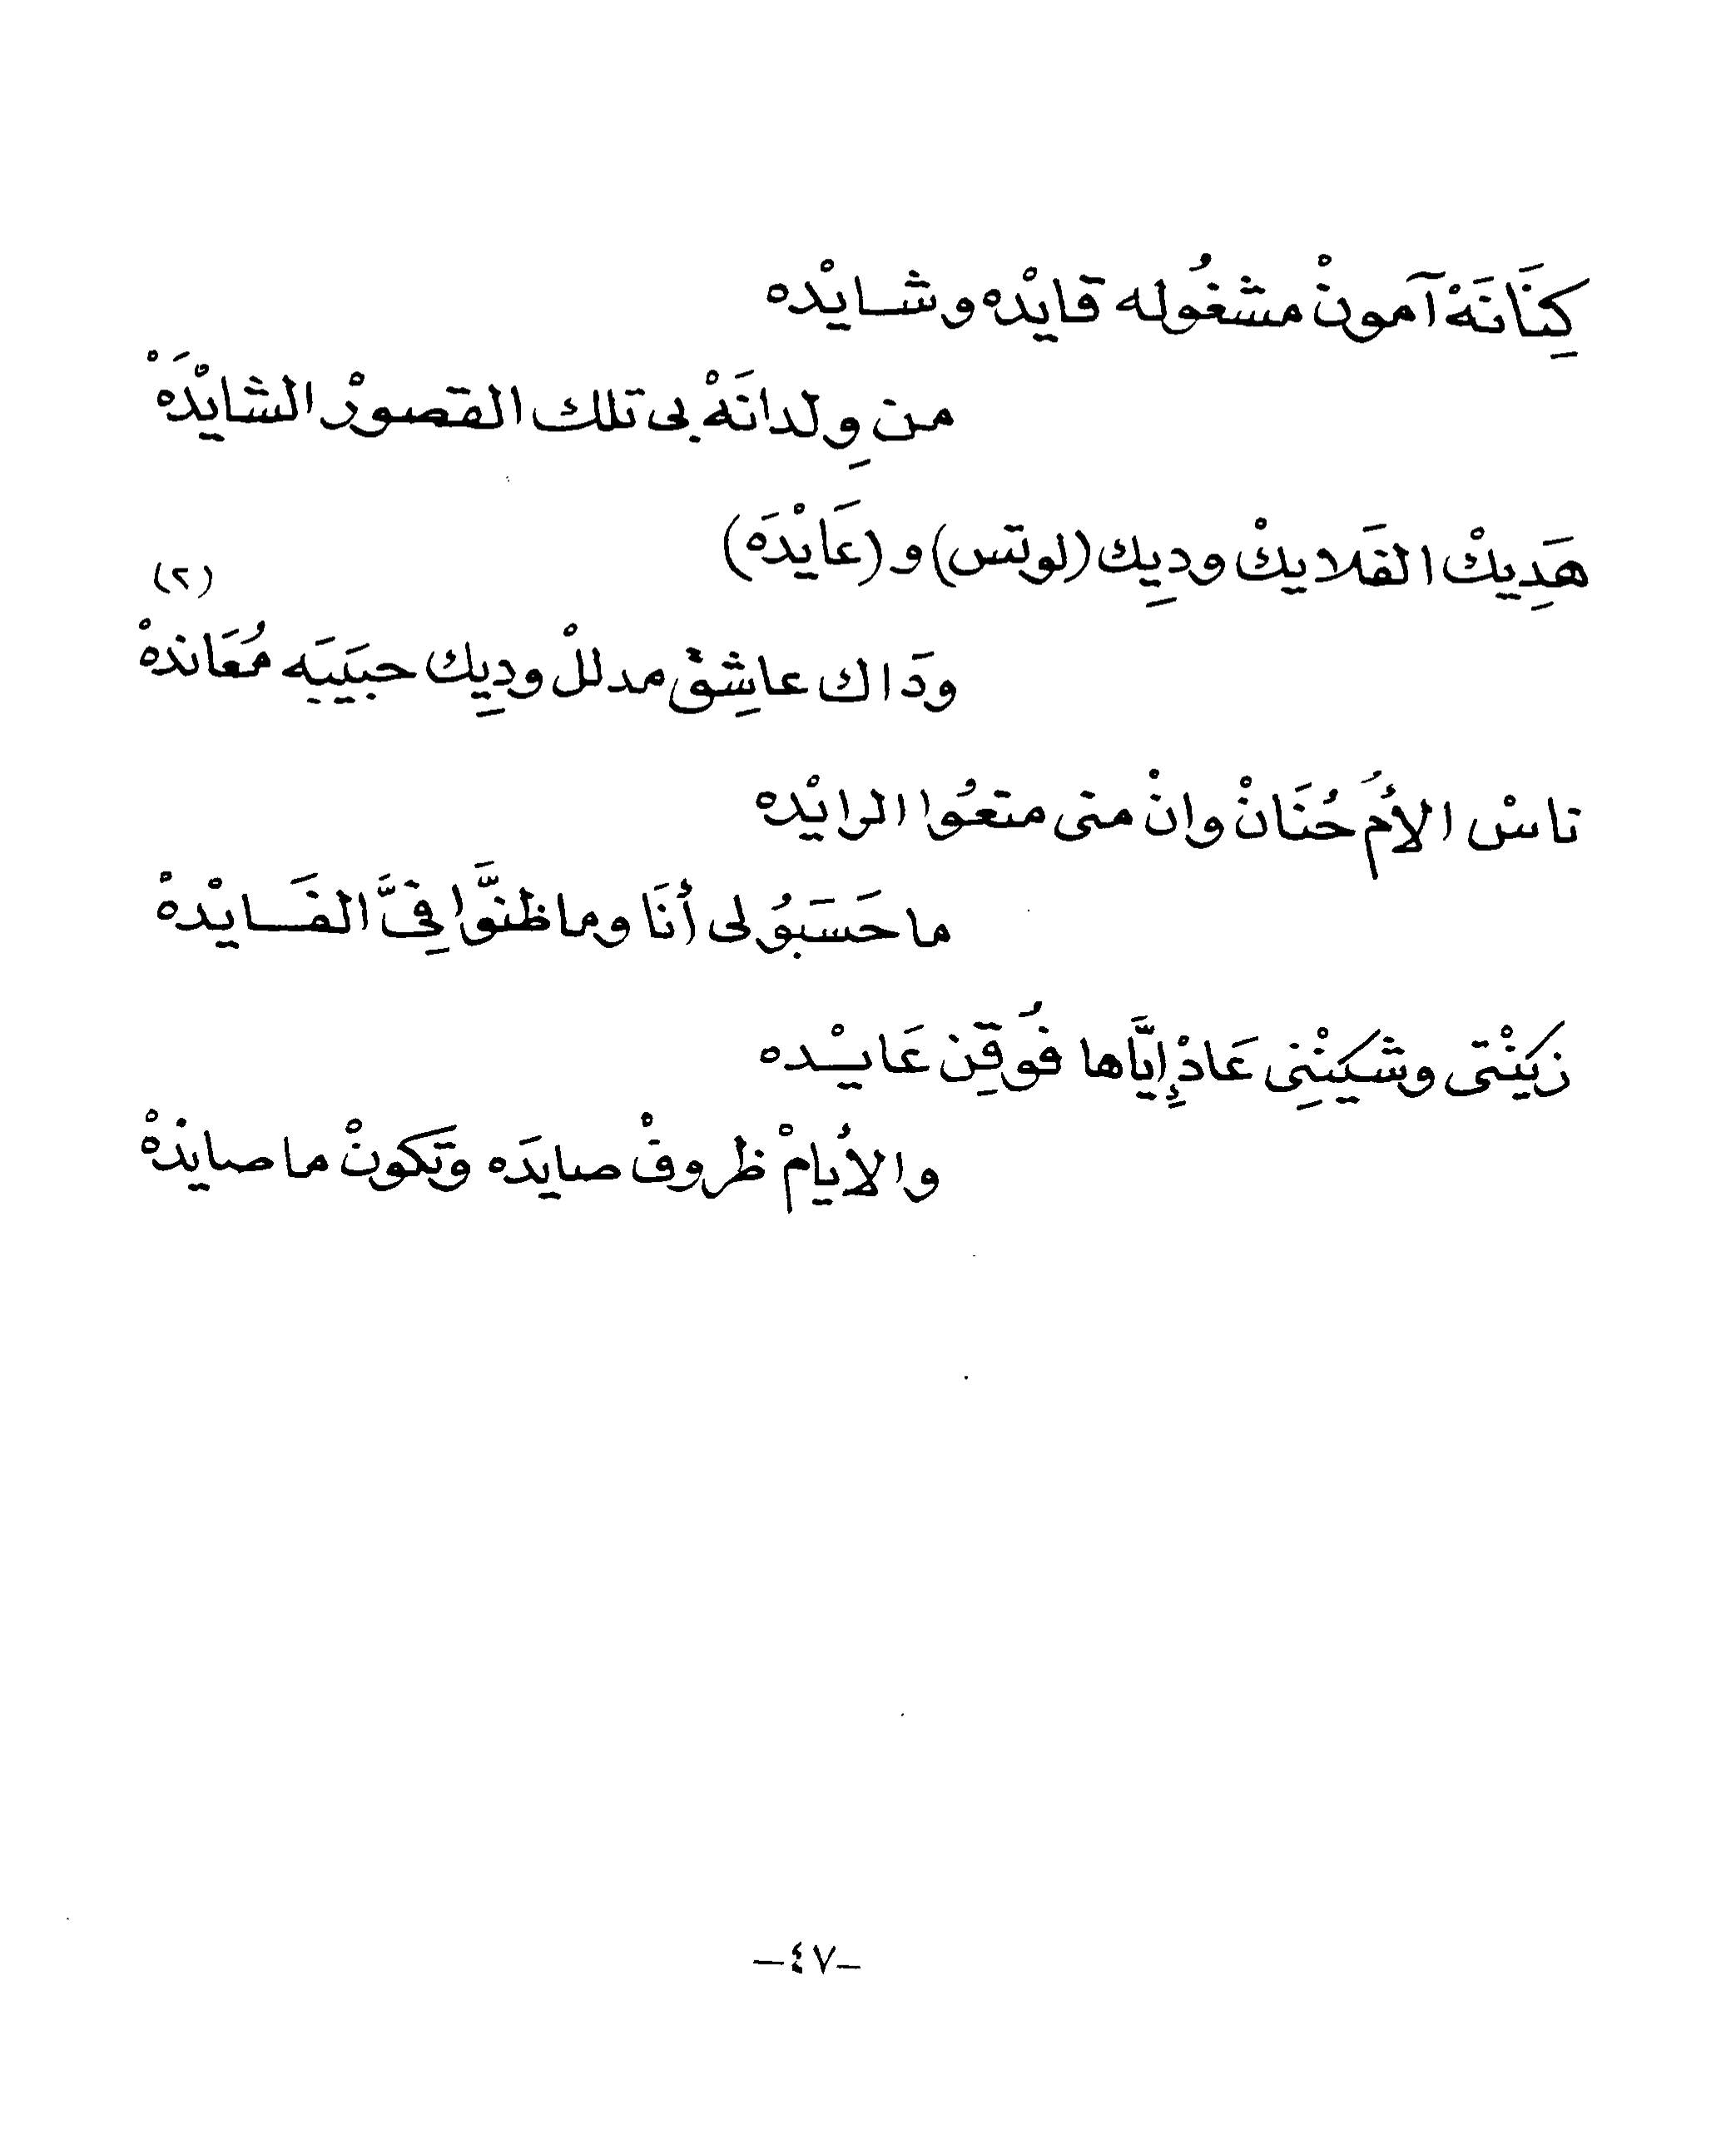 كِنَانَهْ آمونْ مشغُوله قايدْه وشـايدْه
من وِلدانَهْ بى تلك القصورْ الشايدَهْ
هَدِيكْ الفَلايكْ ودِيك (لوتس) و (عَايدَهْ)
(٢)
ودَاك عاشِقْ مدللْ ودِيك حبيَبيَه مُعَاندهْ
ناسْ الأمُ حُنَانْ وانْ متى متعُوا الرايدْه
ما حَسَبَوُ لى أنَا وما ظنوَّا فِىَّ الفَـايدْهْ
زكيْتى وشكيْنِى عَادْ إيَّاها فوُقِن عَايـدْه
والأيامْ ظروفْ صايدَه وتَكونْ ما صايدهْ
-٤٧-